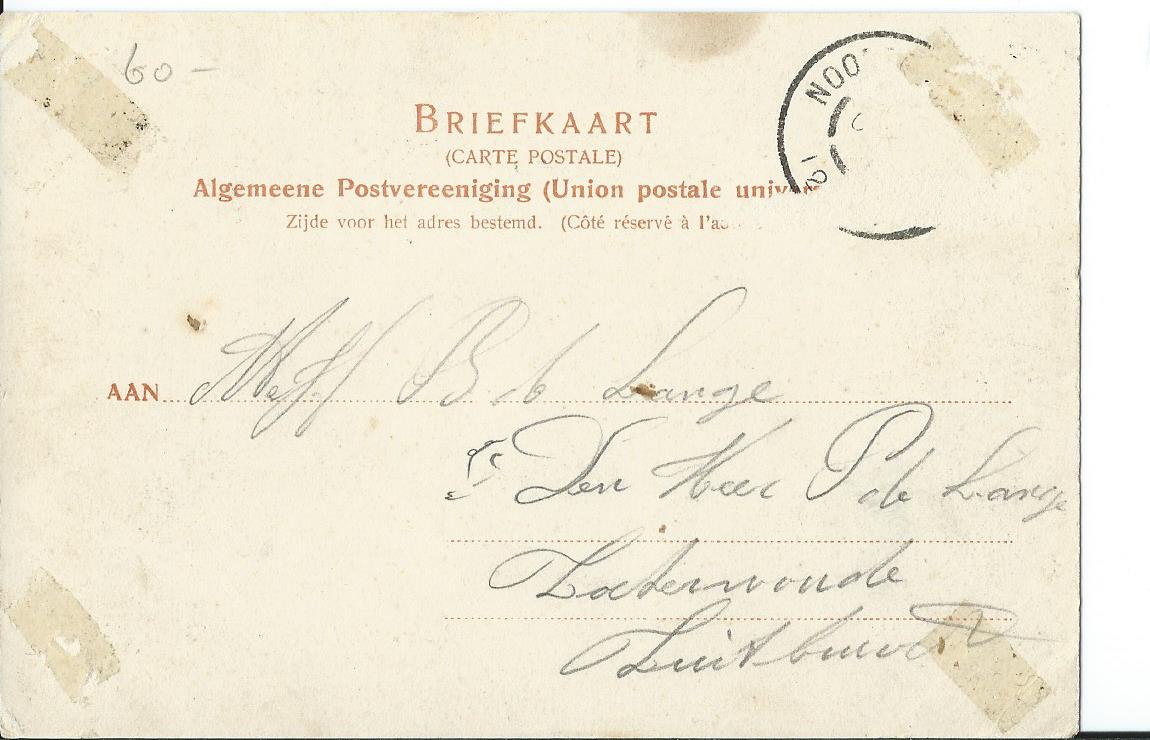 60 –
NOO
BRIEFKAART
(CARTE POSTALE)
Algemeene Postvereeniging (Union postale univers
Zijde voor het adres bestemd. (Côté réservé à l'a
AAN Mejf B de Lange
Den Heer P de Lange
Zoeterwoude
Zuitbuurt